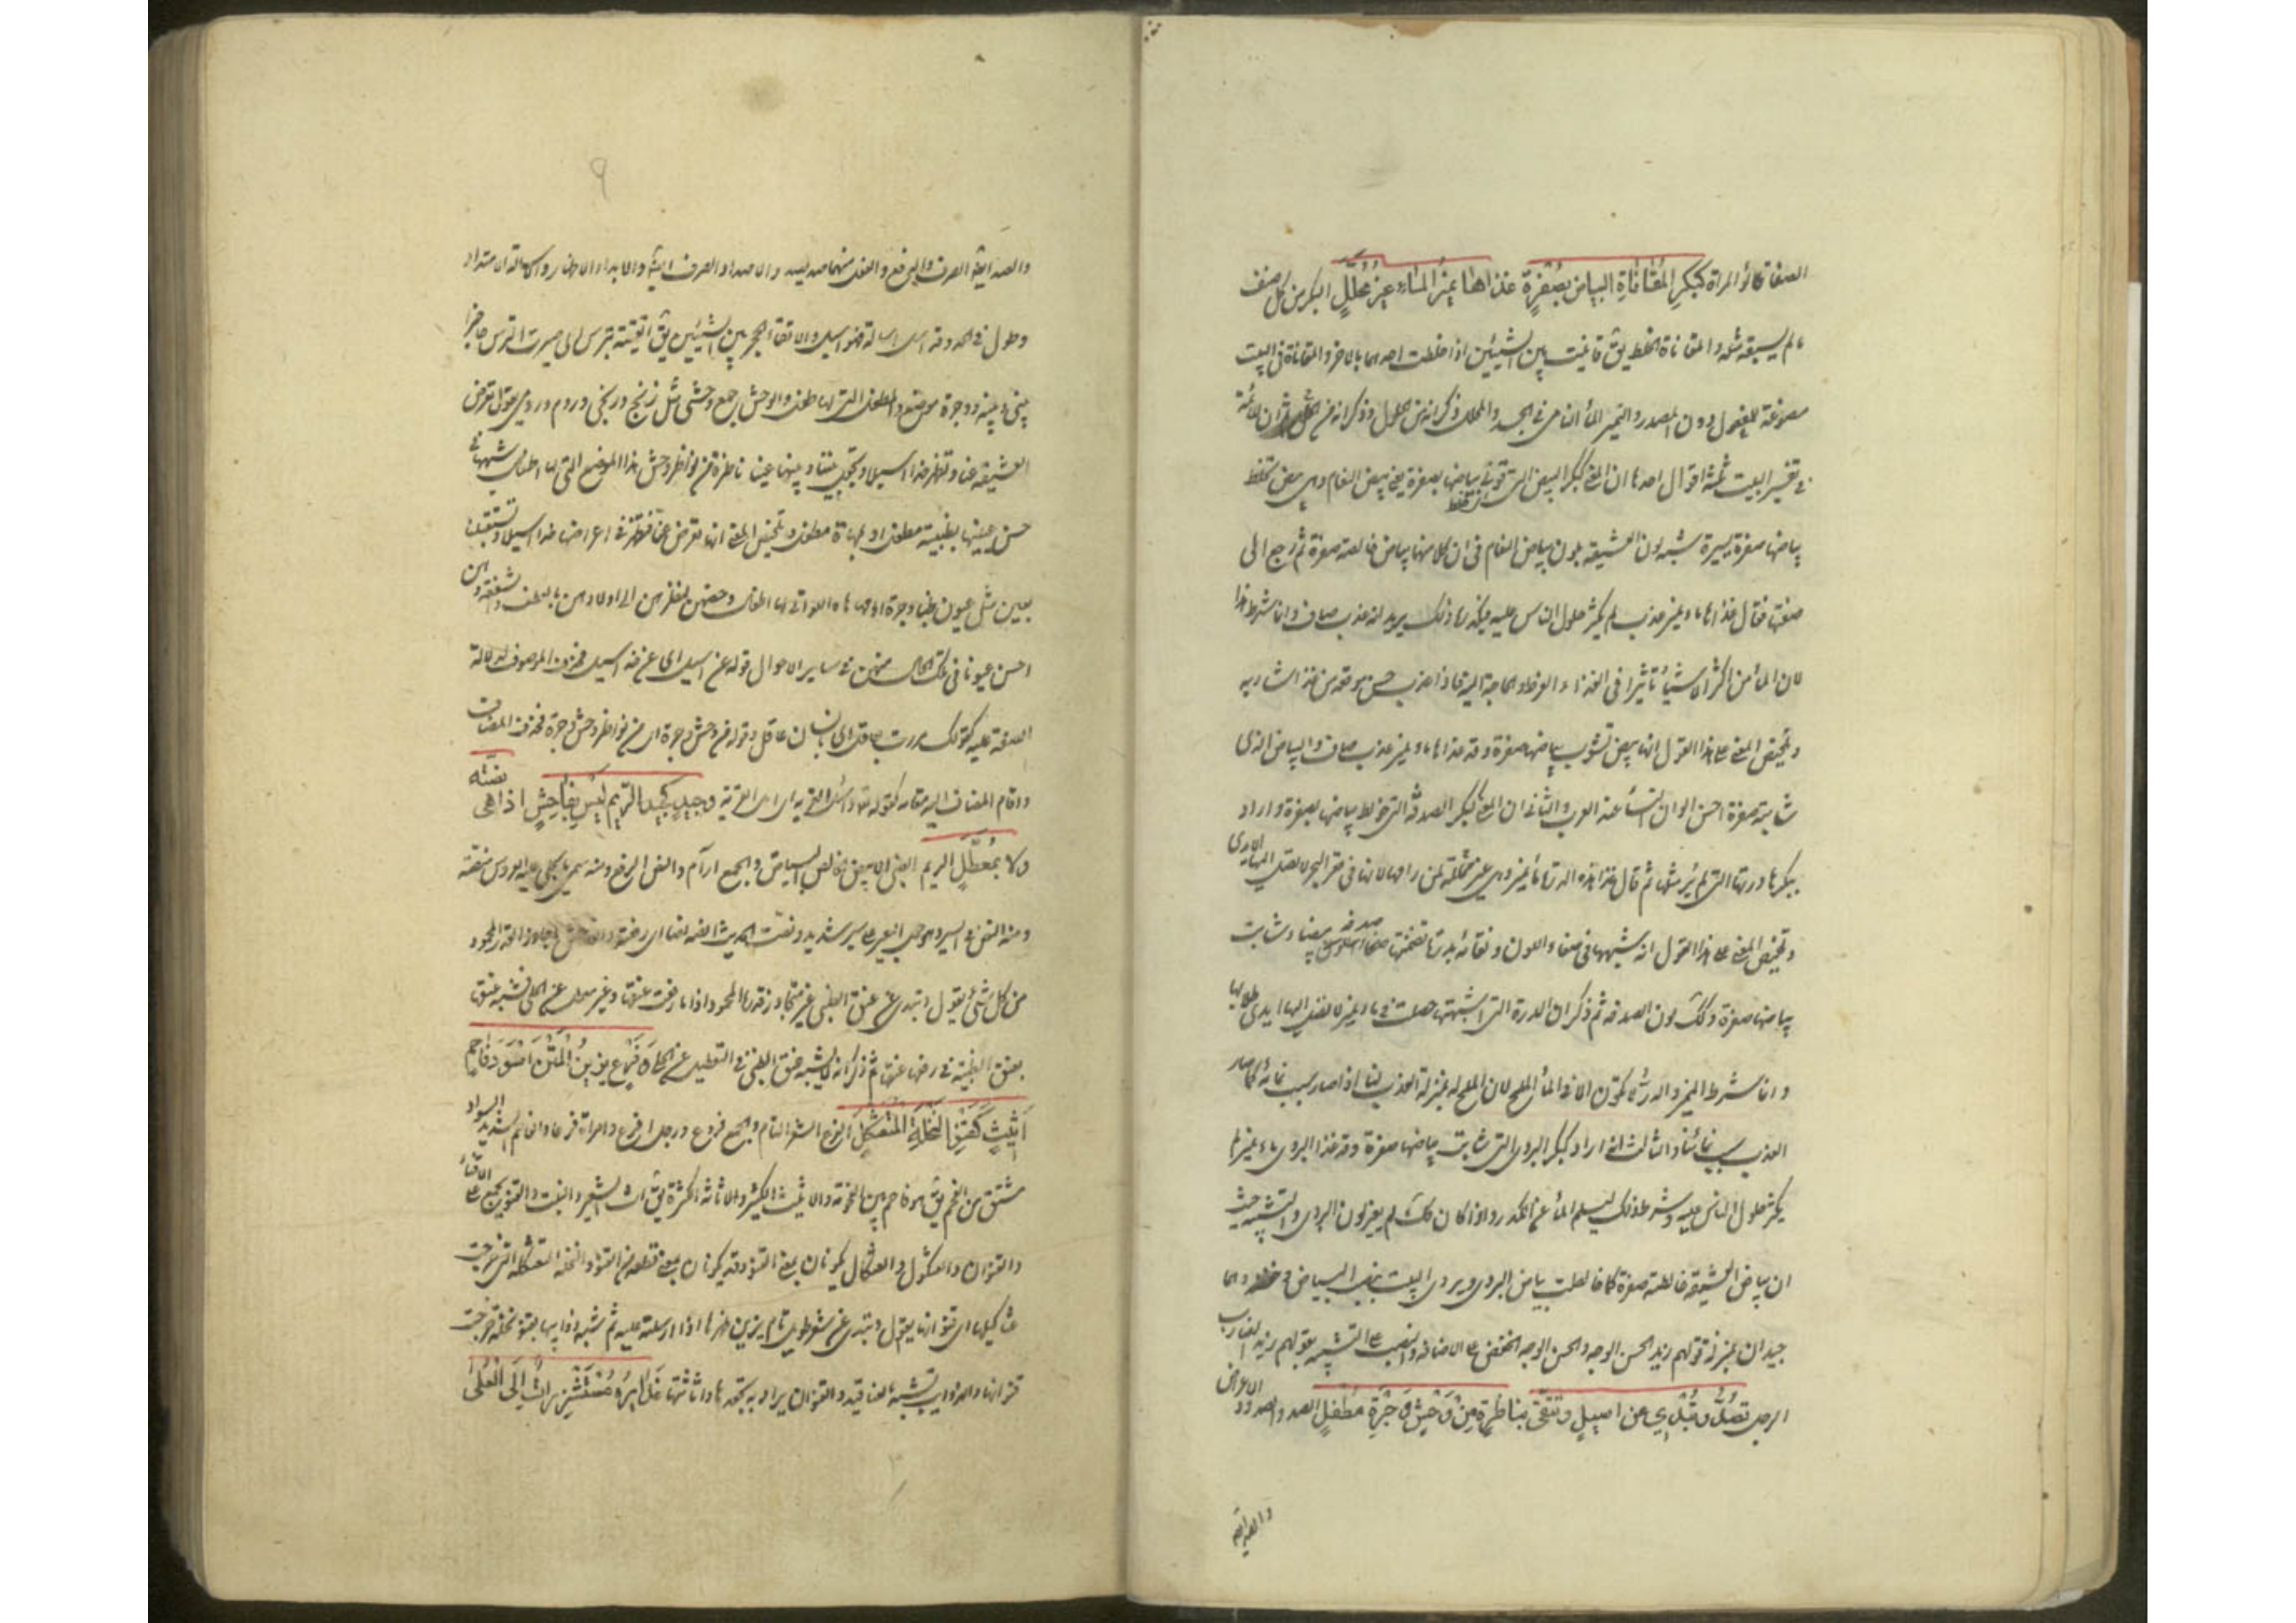 الصفا قالوا المراة كبكر المُقَانَاةِ البياض بصُفرةٍ غذاها نمير الماء غير محلَّلِ البكر من كل صنف
ما لم يسبقه مثله والمقاناة الخلط يق قانيت بين الشيئين اذا خلطت احدهما بالاخر والمقاناة في البيت
مصوغة للمفعول دون المصدر والنمير الماء النامي في الجسد والمحلل ذكر انه من الحلول وذكر انه من الحل ثم ان للائمة
في تفسير البيت ثلثة اقوال احدها ان المعنى كبكر البيض التي قوني بياضها بصفرة يعني بيض النعام وهي بيض تخلط
بياضها صفرة يسيرة شبه لون العشيقة بلون بياض النعام في ان كلا منهما بياض خالطه صفرة ثم رجع الى
صفتها فقال غذاها ماء نمير عذب لم يكثر حلول الناس عليه فيكدرها ذلك يريد انه عذب صاف وانما شرط هذا
لان الماء من اكثر الاشياء تاثيرا في الغذاء لفرط الحاجة اليه فاذا عذب حسن موقعه من غذاء شاربه
وتلخيص المعنى على هذا القول انها بيض تشوب بياضها صفرة وقد غذاها ماء نمير عذب صاف والبياض الذي
شابته صفرة احسن الوان النساء عند العرب والثاني ان المعنى كبكر الصدفة التي خولط بياضها بصفرة واراد
ببكرها درتها التي لم ير مثلها ثم قال غذا هذه الدرة ماء نمير وهي غير محللة لمن رامها لانها في قعر البحر لا تصل اليها الايدي
وتلخيص المعنى على هذا القول انه شبهها في صفاء اللون ونقائه بدرة تضمنتها صدفة بيضاء شابت
بياضها صفرة وكذلك لون الصدفة ثم ذكر ان الدرة التي اشبهتها حصلت في ماء نمير لا تصل اليها ايدي طلابها
وانما شرط النمير والدر لا يكون الا في الماء الملح لان الملح له بمنزلة العذب لنا اذ صار سبب نمائه كما صار
العذب سبب نمائنا والثالث انه اراد كبكر البردي التي شابت بياضها صفرة وقد غذا البردي ماء نمير لم
يكثر حلول الناس عليه وشرط ذلك ليسلم الماء عن الكدر واذا كان كذلك لم يغير لون البردي والتشبيه من حيث
ان بياض العشيقة خالطته صفرة كما خالطت بياض البردي ويروى البيت بنصب البياض وخفضه وهما
جيدان بمنزلة قولهم زيد الحسن الوجه والحسن الوجه الخفض على الاضافة والنصب على التشبيه بقولهم زيد الضارب
الرجل تصُدُّ وتُبْدِي عن اسيلٍ وتتّقي بناظرةٍ من وَحشِ وَجرةَ مُطفِلِ الصد والصدود الاعراض
والصد ايضا
والصد ايضا الصرف والدفع والفعل منهما صد يصد والاصداد الصرف ايضا والابداء الاظهار والاسالة امتداد
وطول في الخد وقد اسل اسالة فهو اسيل والاتقاء الحجز بين الشيئين يق اتقيته بترس اي صيرت الترس حاجزا
بيني وبينه ووجرة موضع والمطفل التي لها طفل والوحش جمع وحشي مثل زنج وزنجي وروم ورومي يقول تعرض
العشيقة عنا وتظهر خدا اسيلا وتجعل بيننا وبينها عينا ناظرة من نواظر وحش هذا الموضع التي لها اطفال شبهها في
حسن عينيها بظبية مطفل او بمهاة مطفل وتلخيص المعنى انها تعرض عنا فتظهر في اعراضها خدا اسيلا وتستقبلنا
بعين مثل عيون ظباء وجرة او مهاها اللواتي لها اطفال وخصهن لنظرهن الى اولادهن بالعطف والشفقة وهن
احسن عيونا في تلك الحال منهن في ساير الاحوال قوله عن اسيل اي عن خد اسيل فحذف الموصوف لدلالة
الصفة عليه كقولك مررت بعاقل اي بانسان عاقل وقوله من وحش وجرة اي من نواظر وحش وجرة فحذف المضاف
واقام المضاف اليه مقامه كقوله تعالى واسئل القرية اي اهل القرية وجيدٍ كجيد الريم ليس بفاحش اذا هي نصته
ولا بمُعطَّلِ الريم الظبي الابيض الخالص البياض والجمع ارآم والنص الرفع ومنه سمي ما تجلى عليه العروس منصة
ومنه النص في السير وهو حمل البعير على سير شديد ونصصت الحديث انصه نصا اي رفعته والفاحش ما جاوز القدر المحمود
من كل شئ يقول وتبدي عن عنق كعنق الظبي غير متجاوز قدرها المحمود اذا ما رفعت عنقها وغير معطل عن الحلي فشبه عنقها
بعنق الظبية في رفعها عنقها ثم ذكر انه لا يشبه عنق الظبي في التعطيل عن الحلي وَفَرْعٍ يزينُ المتن اسود فاحمٍ
اَثيثٍ كقِنو النخلةِ المُتَعَثكِلِ الفرع الشعر التام والجمع فروع ورجل افرع وامراة فرعاء والفاحم الشديد السواد
مشتق من الفحم يق هو فاحم بين الفحومة والاثيث الكثير والاثاثة الكثرة يق اث الشعر والنبت والقنو يجمع على الاقناء
والقنوان والعثكول والعثكال يكونان بمعنى القنو وقد يكونان بمعنى قطعة من القنو والنخلة المتعثكلة التي خرجت
عثاكيلها اي قنوانها يقول وتبدي عن شعر طويل تام يزين ظهرها اذا ارسلته عليه ثم شبه ذوايبها بقنو نخلة خرجت
قنوانها والذوايب تشبه بالعناقيد والقنوان يراد به تجعدها واثاثتها غدايرُه مُستشزِراتٌ اِلَى العُلَى